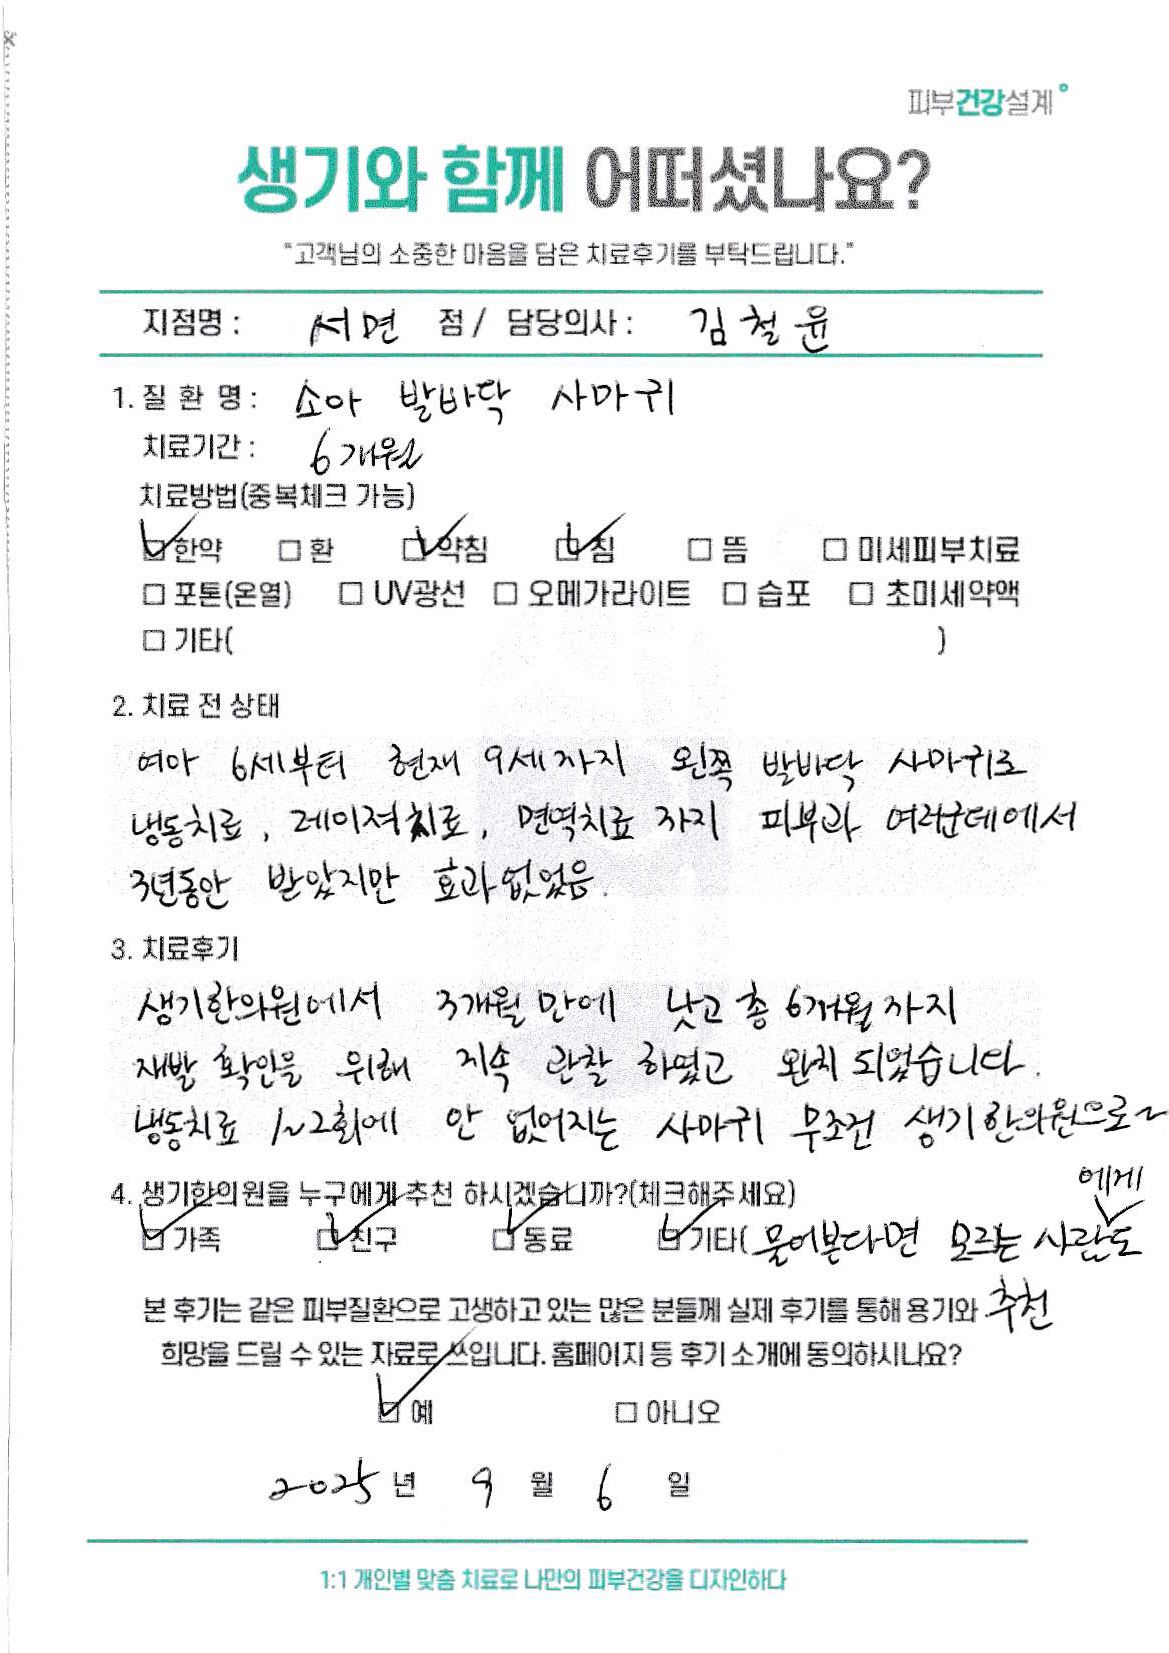 피부건강설계
생기와 함께 어떠셨나요?
"고객님의 소중한 마음을 담은 치료후기를 부탁드립니다."
지점명 : 서면 점 / 담당의사 : 김철윤
1. 질 환 명 : 소아 발바닥 사마귀
치료기간 : 6개월
치료방법(중복체크 가능)
☑ 한약 □ 환 ☑ 약침 ☑ 침 □ 뜸 □ 미세피부치료
□ 포톤(온열) □ UV광선 □ 오메가라이트 □ 습포 □ 초미세약액
□ 기타( )
2. 치료 전 상태
여아 6세부터 현재 9세까지 왼쪽 발바닥 사마귀로
냉동치료, 레이저치료, 면역치료 까지 피부과 여러군데에서
3년동안 받았지만 효과없었음.
3. 치료후기
생기한의원에서 3개월만에 낫고 총 6개월까지
재발 확인을 위해 지속 관찰 하였고 완치 되었습니다.
냉동치료 1~2회에 안 없어지는 사마귀 무조건 생기한의원으로~
4. 생기한의원을 누구에게 추천 하시겠습니까?(체크해주세요)
☑ 가족 ☑ 친구 ☑ 동료 ☑ 기타( 물어본다면 모르는 사람에게도
추천
본 후기는 같은 피부질환으로 고생하고 있는 많은 분들께 실제 후기를 통해 용기와
희망을 드릴 수 있는 자료로 쓰입니다. 홈페이지 등 후기 소개에 동의하시나요?
☑ 예 □ 아니오
2025 년 9 월 6 일
1:1 개인별 맞춤 치료로 나만의 피부건강을 디자인하다